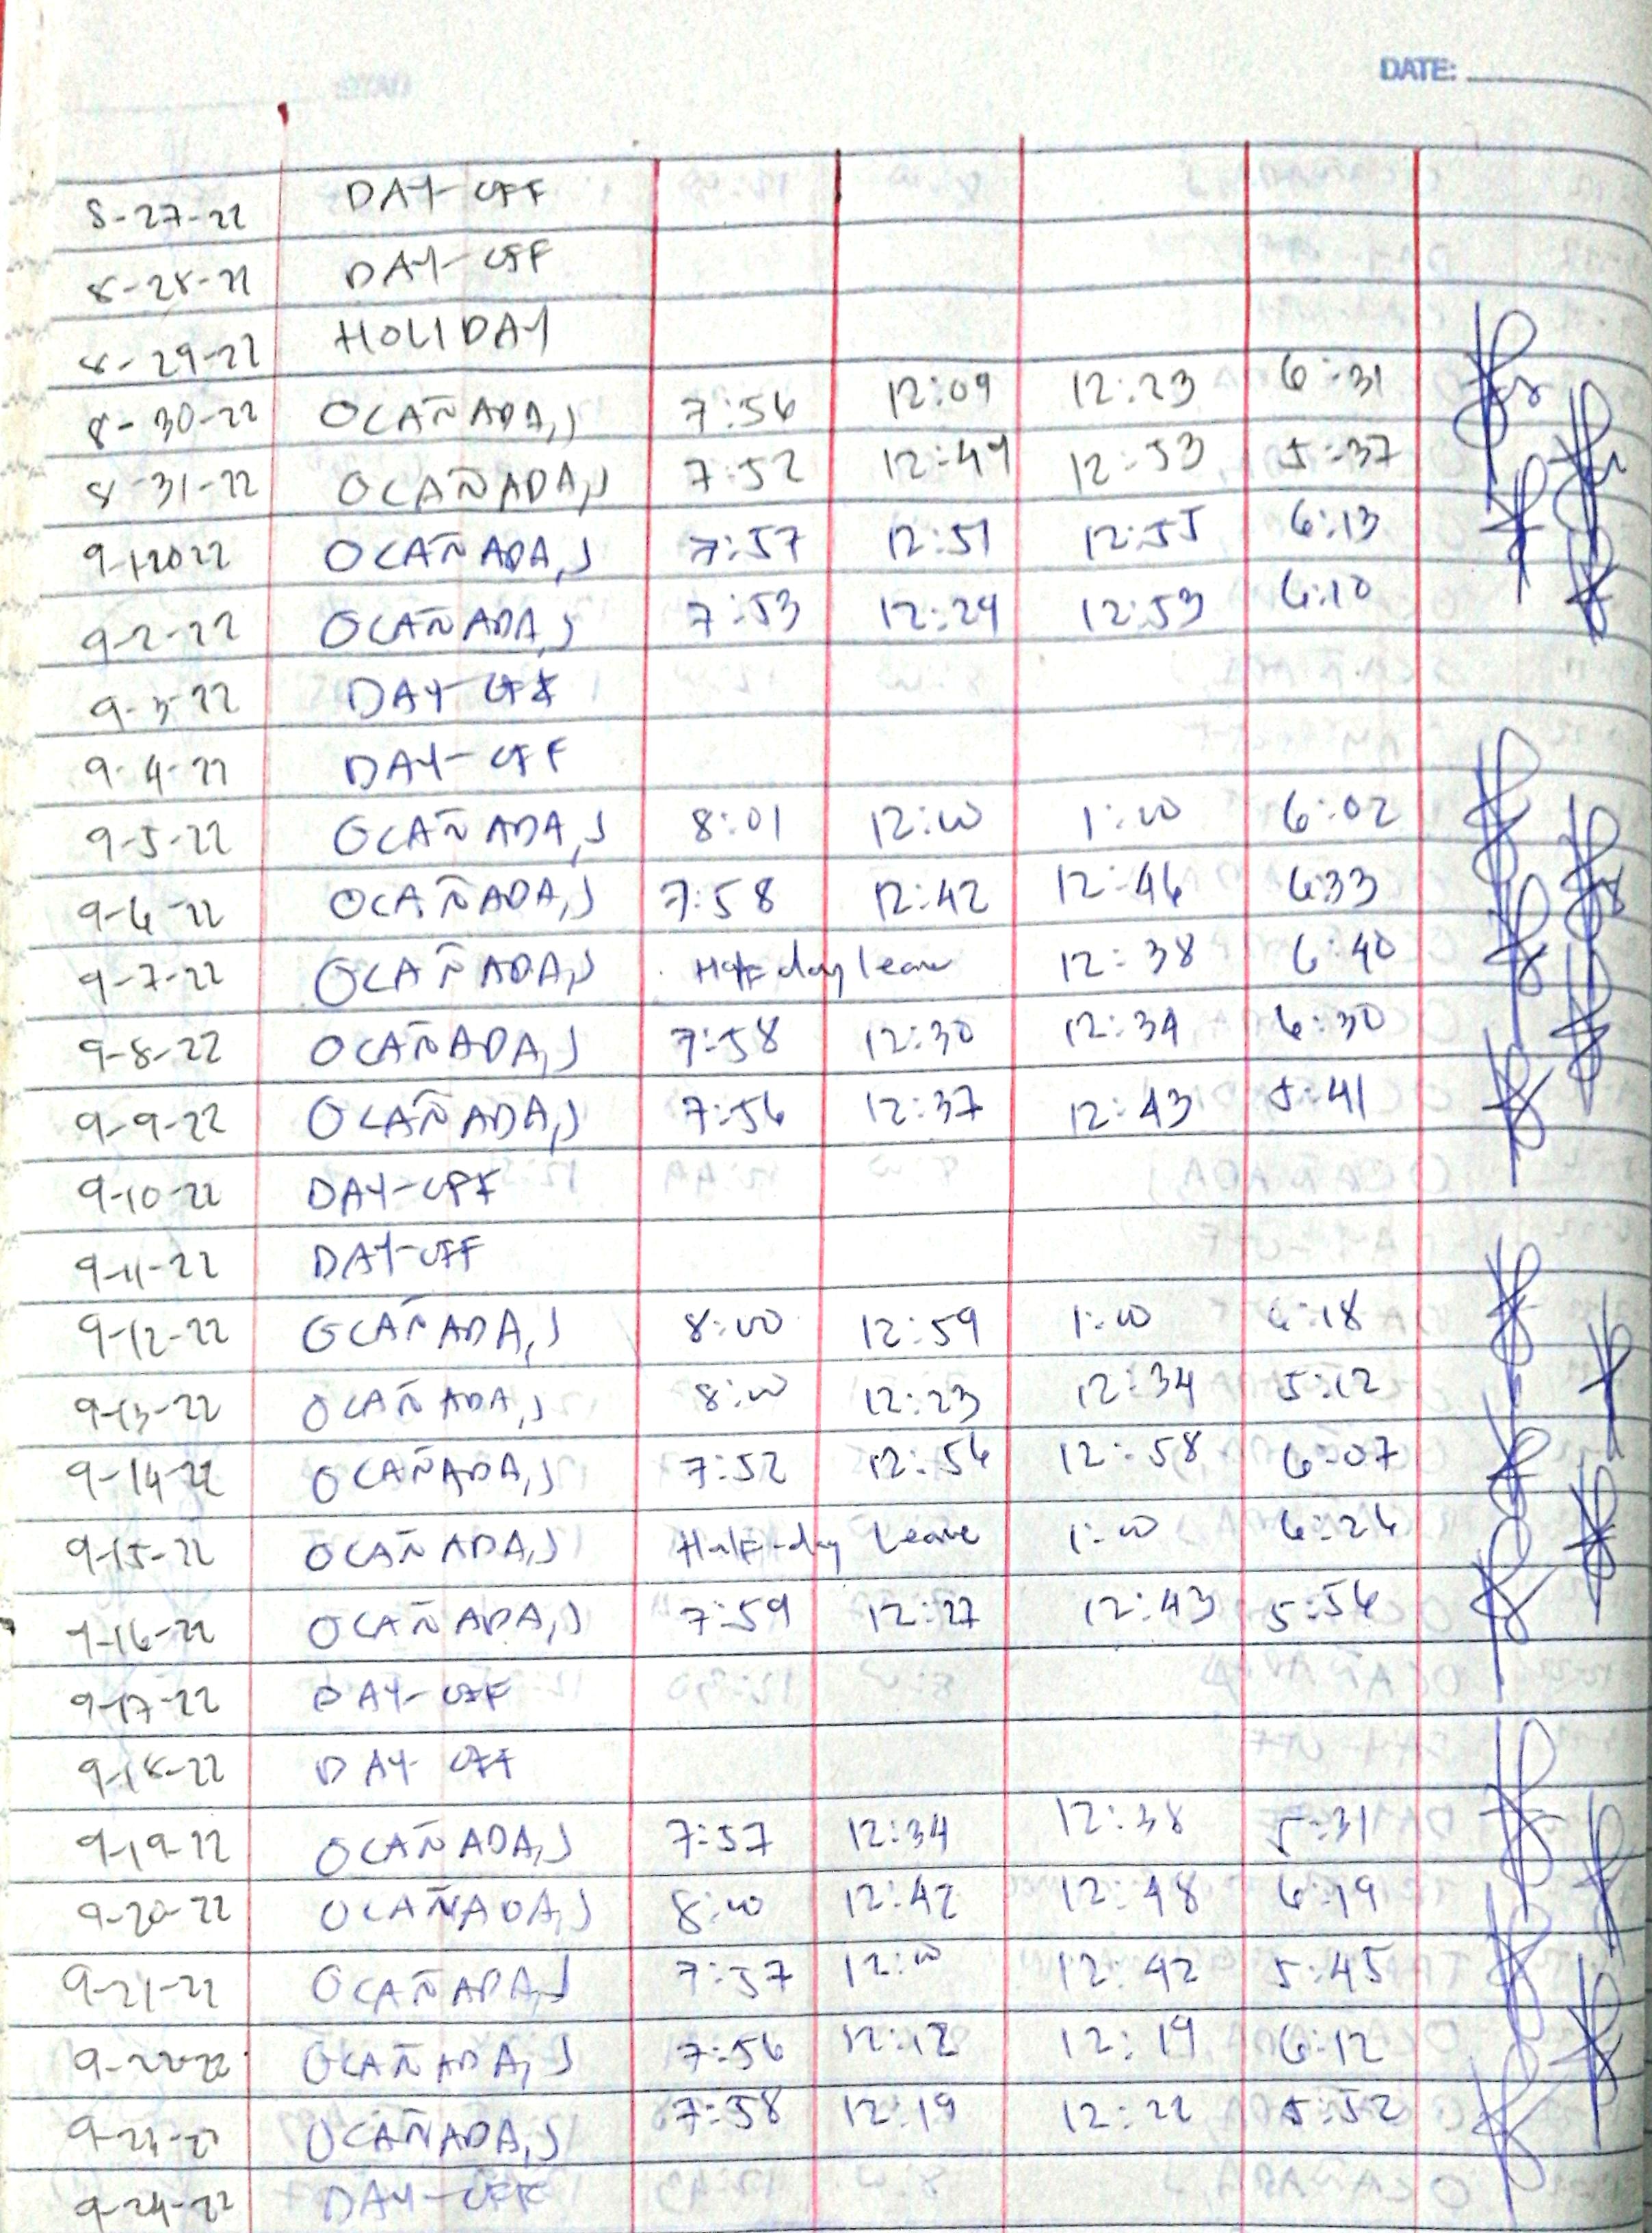 DATE:
8-27-22 DAY-OFF
8-28-22 DAY-OFF
8-29-22 HOLIDAY
8-30-22 OCAÑADA,J 7:56 12:09 12:23 6:31
8-31-22 OCAÑADA,J 7:52 12:49 12:53 5:37
9-1-2022 OCAÑADA,J 7:57 12:51 12:55 6:13
9-2-22 OCAÑADA,J 7:53 12:29 12:53 6:10
9-3-22 DAY-OFF
9-4-22 DAY-OFF
9-5-22 OCAÑADA,J 8:01 12:00 1:00 6:02
9-6-22 OCAÑADA,J 7:58 12:42 12:46 6:33
9-7-22 OCAÑADA,J Half day leave 12:38 6:40
9-8-22 OCAÑADA,J 7:58 12:30 12:34 6:30
9-9-22 OCAÑADA,J 7:56 12:37 12:43 5:41
9-10-22 DAY-OFF
9-11-22 DAY-OFF
9-12-22 OCAÑADA,J 8:00 12:59 1:00 6:18
9-13-22 OCAÑADA,J 8:00 12:23 12:34 5:12
9-14-22 OCAÑADA,J 7:52 12:56 12:58 6:07
9-15-22 OCAÑADA,J Half-day Leave 1:00 6:26
9-16-22 OCAÑADA,J 7:59 12:27 12:43 5:56
9-17-22 DAY-OFF
9-18-22 DAY-OFF
9-19-22 OCAÑADA,J 7:57 12:34 12:38 5:31
9-20-22 OCAÑADA,J 8:00 12:42 12:48 6:19
9-21-22 OCAÑADA,J 7:57 12:00 12:42 5:45
9-22-22 OCAÑADA,J 7:56 12:12 12:19 6:12
9-23-22 OCAÑADA,J 7:58 12:19 12:22 5:52
9-24-22 DAY-OFF